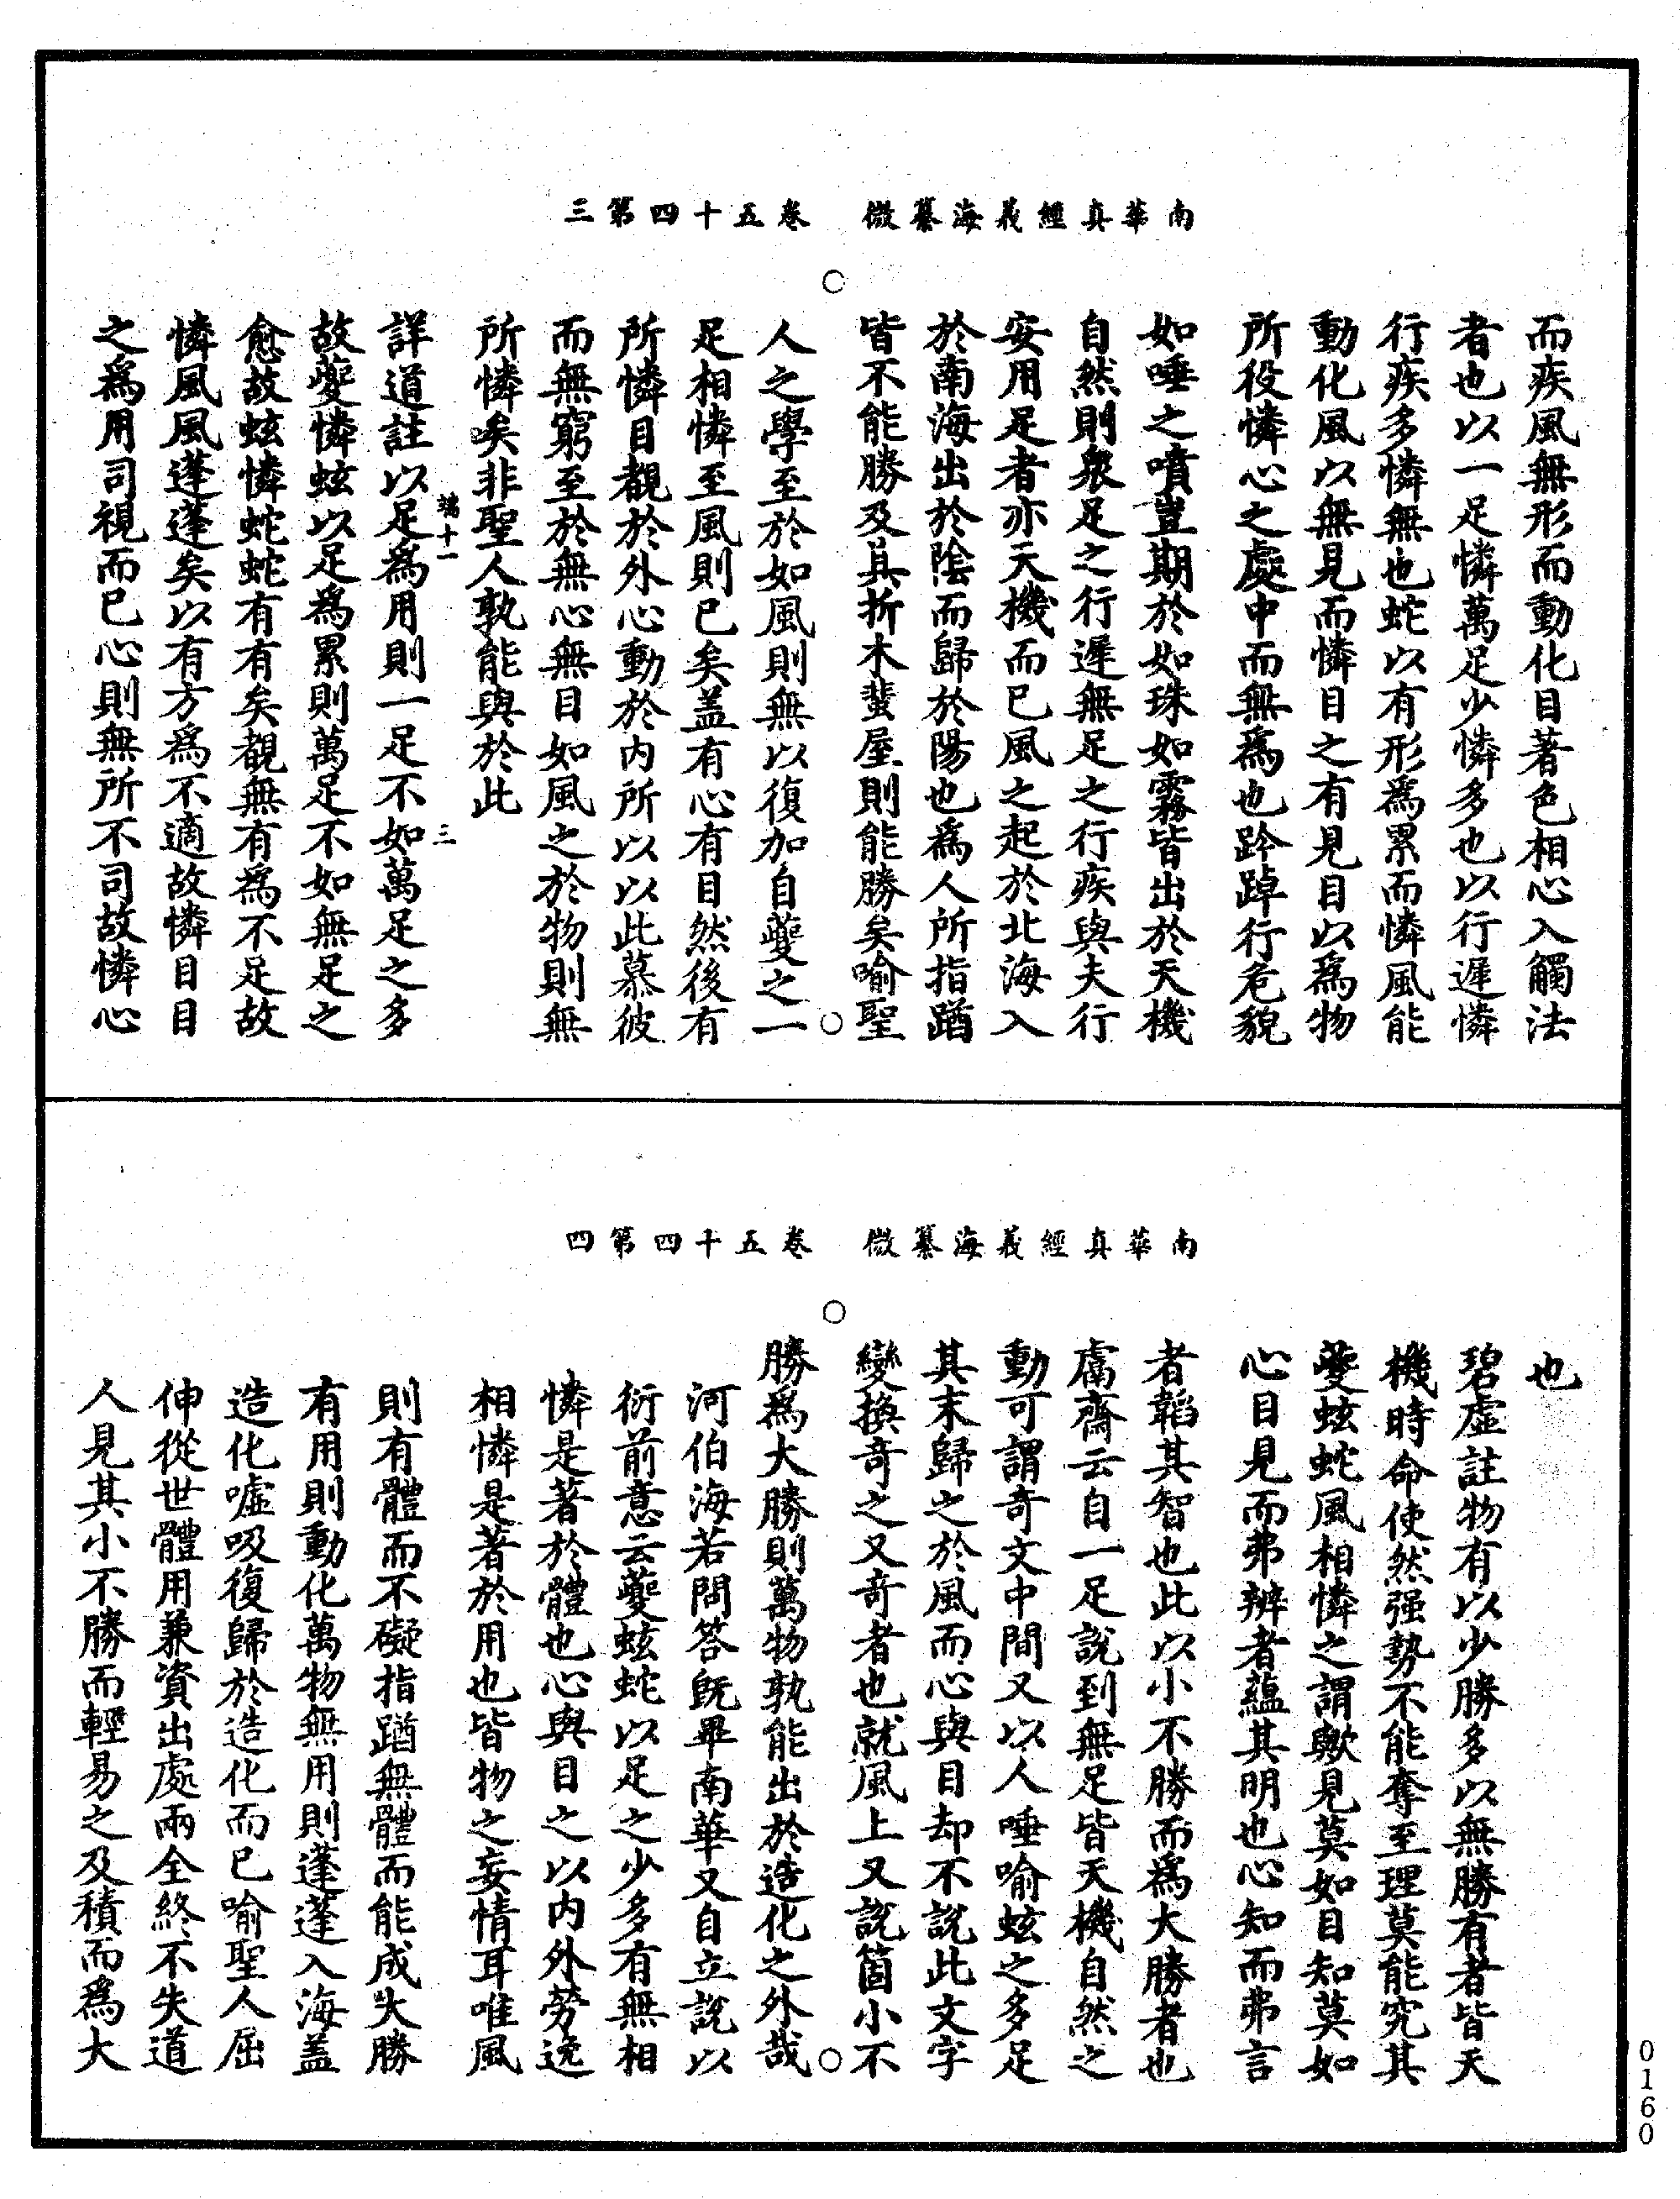 南華真經義海纂微　卷五十四第三
而疾風無形而動化目著色相心入觸法
者也以一足憐萬足少憐多也以行遲憐
行疾多憐無也蛇以有形為累而憐風能
動化風以無見而憐目之有見目以為物
所役憐心之處中而無為也跉踔行危貌
如唾之噴豈期於如珠如霧皆出於天機
自然則衆足之行遲無足之行疾與夫行
安用足者亦天機而已風之起於北海入
於南海出於陰而歸於陽也為人所指蹈
皆不能勝及其折木蜚屋則能勝矣喻聖
人之學至於如風則無以復加自夔之一
足相憐至風則已矣蓋有心有目然後有
所憐目覩於外心動於内所以以此慕彼
而無窮至於無心無目如風之於物則無
所憐矣非聖人孰能與於此
詳道註以足為用則一足不如萬足之多
端十一　三
故夔憐蚿以足為累則萬足不如無足之
愈故蚿憐蛇蛇有有矣覩無有為不足故
憐風風蓬蓬矣以有方為不適故憐目目
之為用司視而已心則無所不司故憐心
南華真經義海纂微　卷五十四第四
也
碧虛註物有以少勝多以無勝有者皆天
機時命使然强勢不能奪至理莫能究其
夔蚿蛇風相憐之謂歟見莫如目知莫如
心目見而弗辨者蘊其明也心知而弗言
者韜其智也此以小不勝而為大勝者也
鬳齋云自一足說到無足皆天機自然之
動可謂奇文中間又以人唾喻蚿之多足
其末歸之於風而心與目却不說此文字
變換奇之又奇者也就風上又說箇小不
勝為大勝則萬物孰能出於造化之外哉
河伯海若問答旣畢南華又自立說以
衍前意云夔蚿蛇以足之少多有無相
憐是著於體也心與目之以内外勞逸
相憐是著於用也皆物之妄情耳唯風
則有體而不礙指蹈無體而能成大勝
有用則動化萬物無用則蓬蓬入海蓋
造化噓吸復歸於造化而已喻聖人屈
伸從世體用兼資出處兩全終不失道
人見其小不勝而輕易之及積而為大
0160